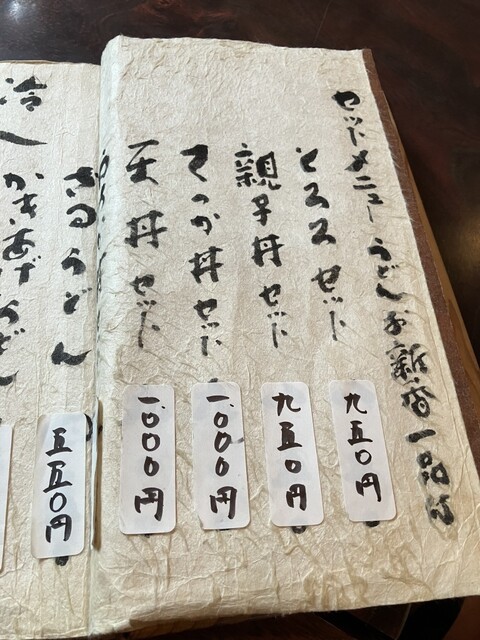 セットメニュー うどん お新香 一品付
とろろ セット 九五〇円
親子丼 セット 九五〇円
てっか丼 セット 一、〇〇〇円
天丼 セット 一、〇〇〇円
ざるうどん 五五〇円
かきあげうどん
冷